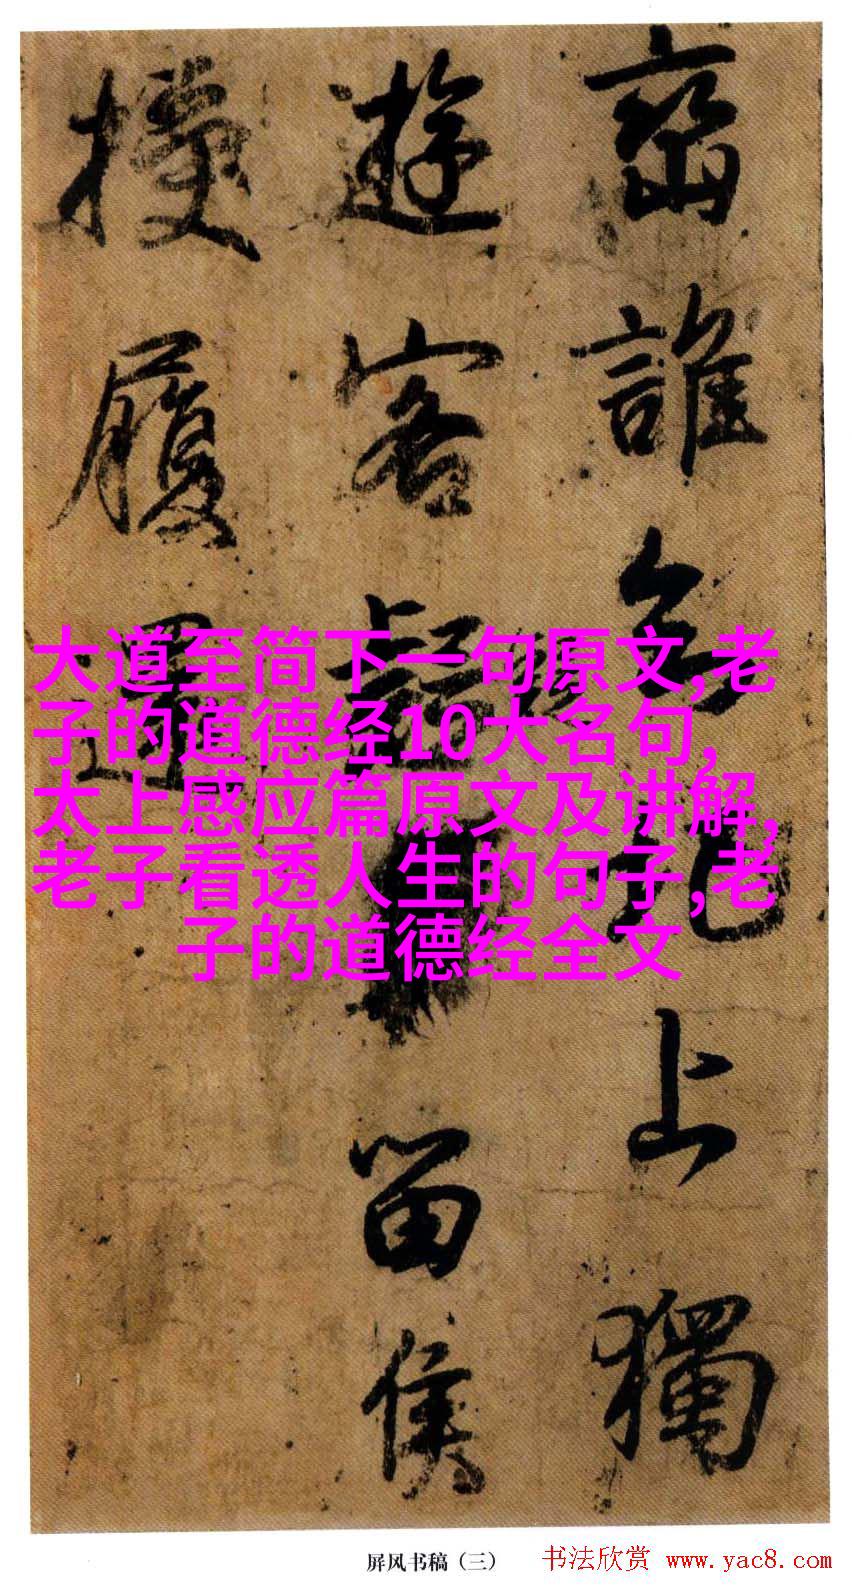 誰 上獨
遊客 留侯
履還
大道至简下一句原文,老
子的道德经10大名句,
太上感应篇原文及讲解,
老子看透人生的句子,老
子的道德经全文
屏风书稿（三）
书法欣赏 www.yac8.com